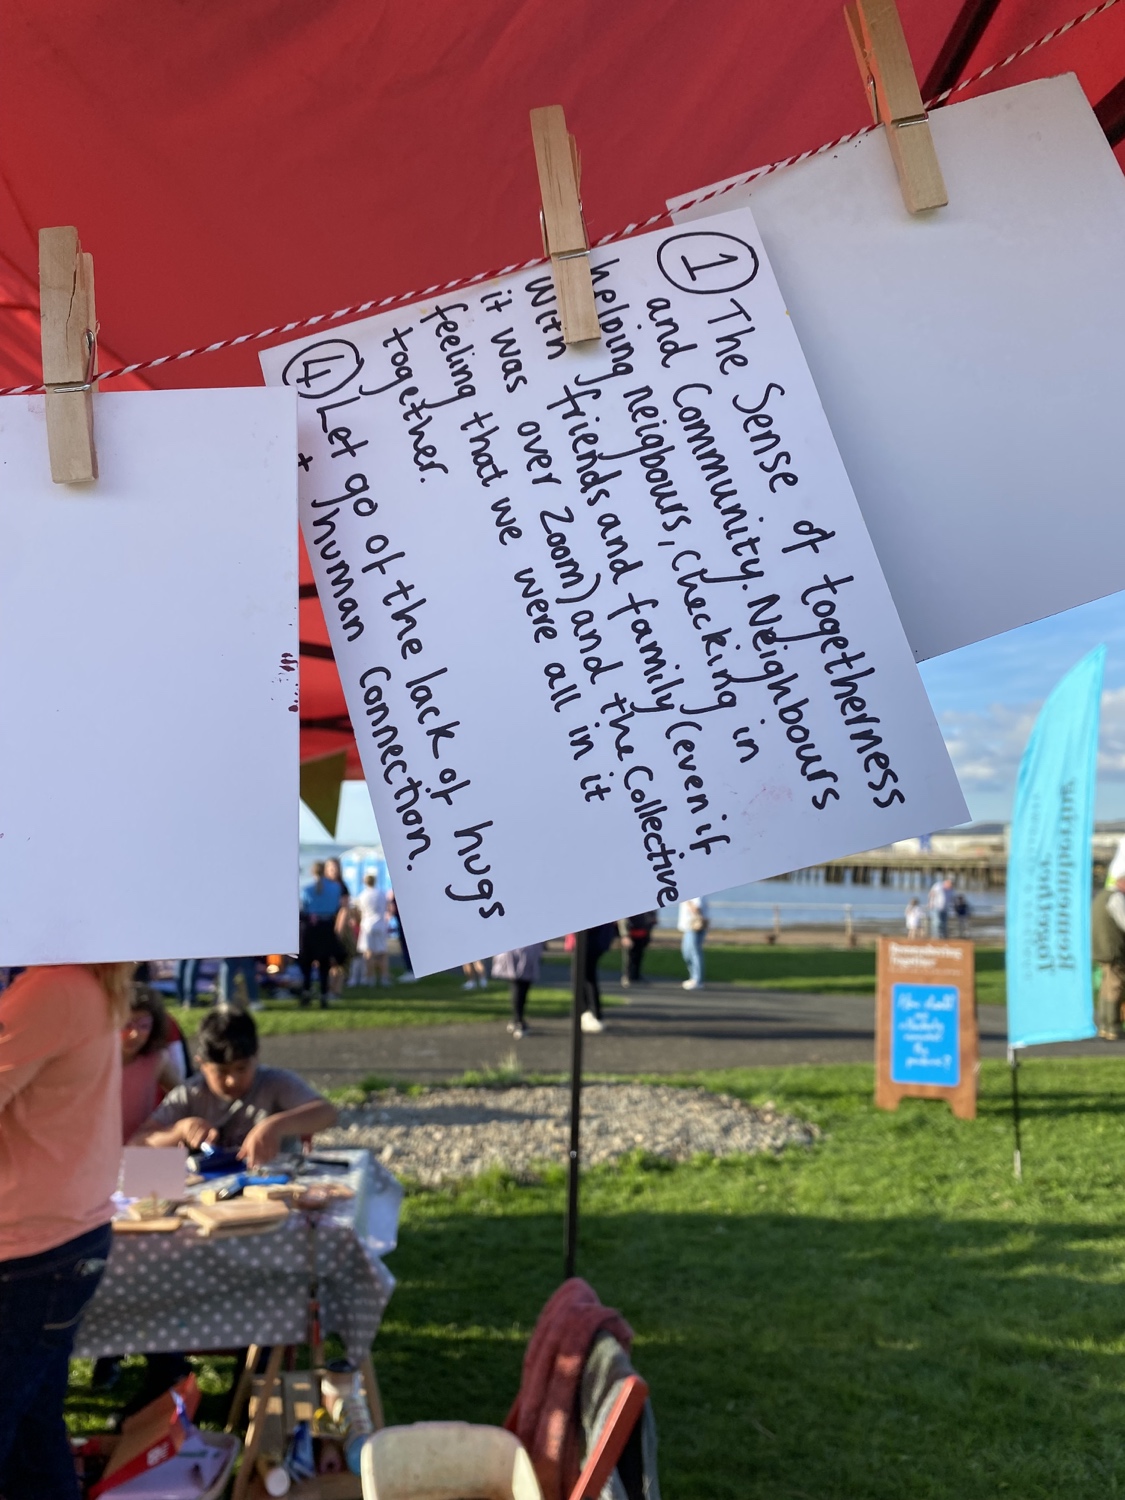 ① The Sense of togetherness
and Community. Neighbours
helping neigbours, Checking in
with friends and family (even if
it was over Zoom) and the Collective
feeling that we were all in it
together.
④ Let go of the lack of hugs
+ human Connection.
Remembering
Together
Remembering
Together